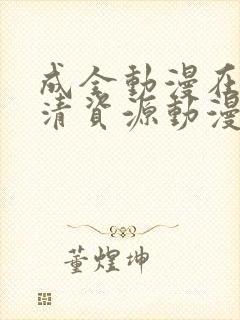 成全動漫在
清資源動漫
董煌坤